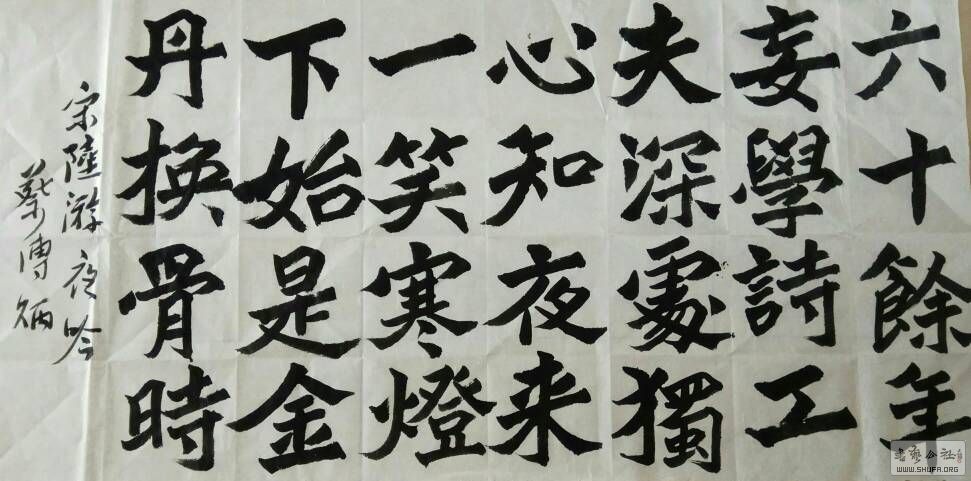 六十餘年
妄學詩工
夫深處獨
心知夜来
一笑寒燈
下始是金
丹换骨時
宋陸游夜吟
蔡傳炳
書藝公社
WWW.SHUFA.ORG